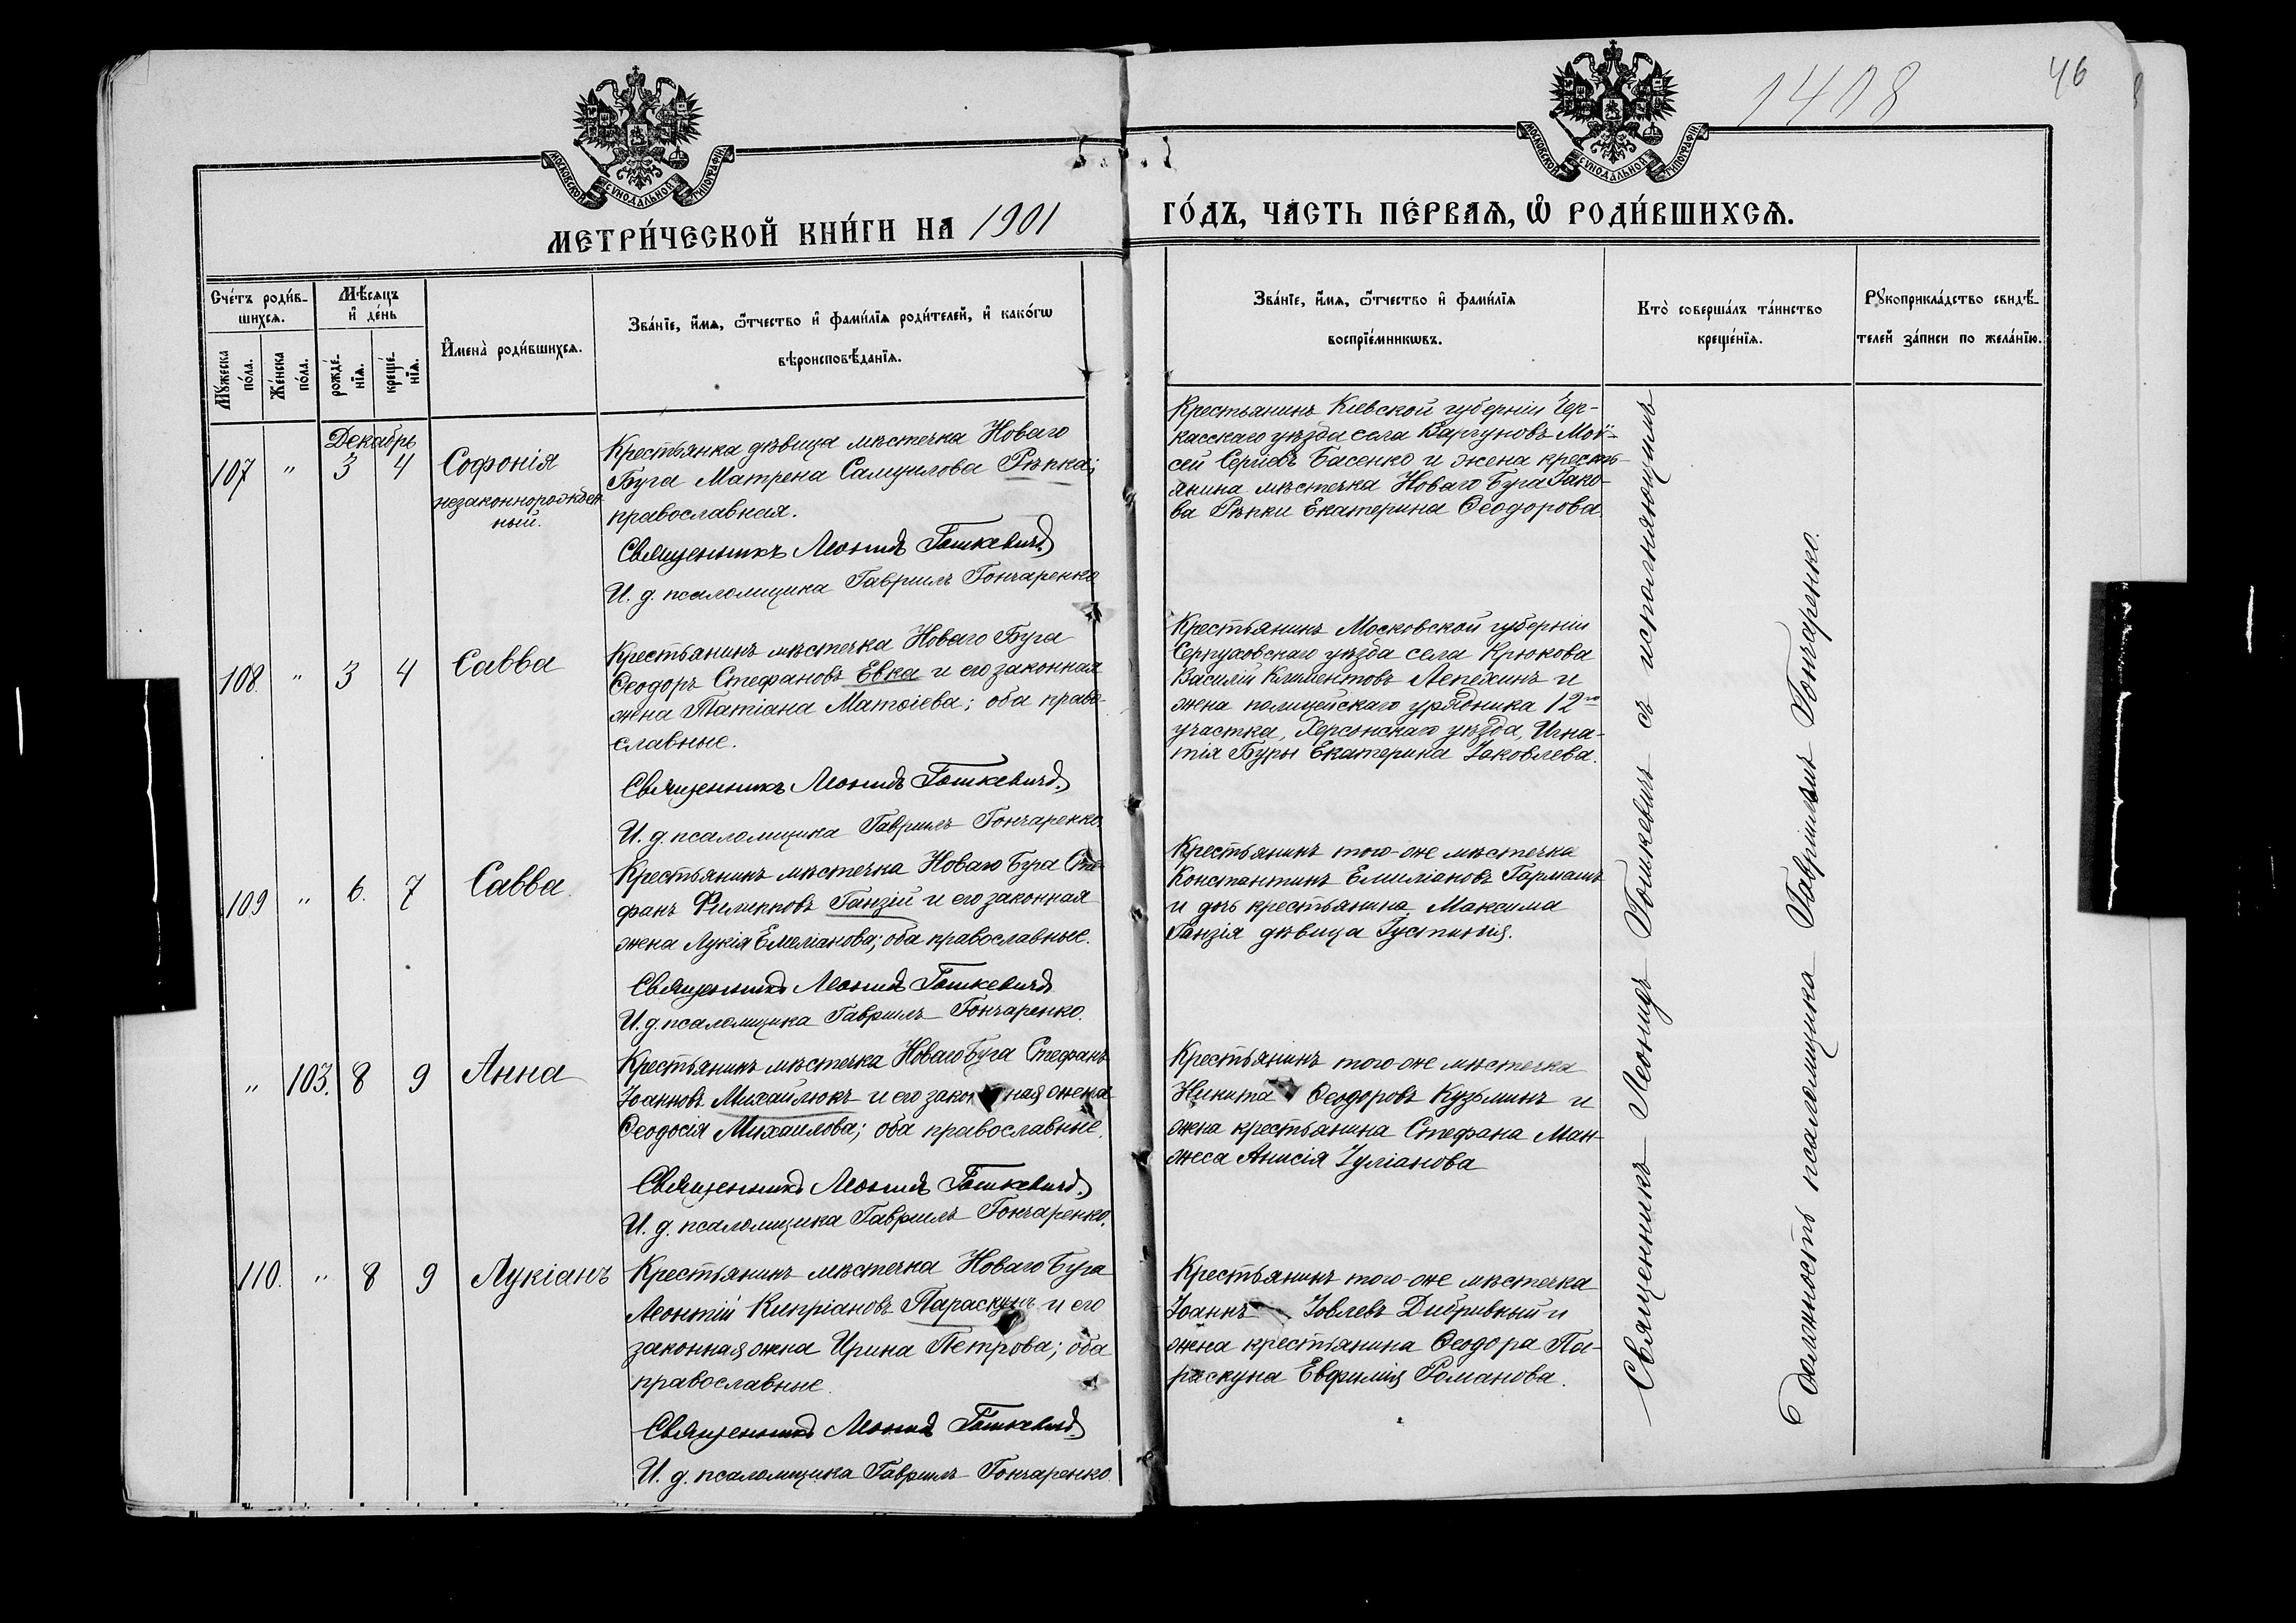 1408
46
МОСКОВСКОЙ СѴНОДАЛЬНОЙ ТИПОГРАФІИ
МОСКОВСКОЙ СѴНОДАЛЬНОЙ ТИПОГРАФІИ
МЕТРИ́ЧЕСКОЙ КНИ́ГИ НА 1901
ГО́ДЪ, ЧА́СТЬ ПЕ́РВАѦ, Ѿ РОДИ́ВШИХСѦ.
Сче́тъ роди́в-
шихсѧ.
Мѣ́сѧцъ
и҆ де́нь
Мꙋ́жеска
по́ла.
Же́нска
по́ла.
рожде́-
нїѧ.
креще́-
нїѧ.
И҆мена̀ роди́вшихсѧ.
Зва́нїе, и҆́мѧ, ѻ҆́тчество и҆ фами́лїѧ роди́телей, и҆ како́гѡ
вѣроисповѣ́данїѧ.
Зва́нїе, и҆́мѧ, ѻ҆́тчество и҆ фами́лїѧ
воспрїе́мникѡвъ.
Кто̀ соверша́лъ та́инство
креще́нїѧ.
Рꙋкоприкла́дство свидѣ́-
телей за́писи по жела́нїю.
Декабрь
107 " 3 4 Софонія
незаконнорожден-
ный.
Крестьянка дѣвица мѣстечка Новаго
Буга Матрена Самуилова Рѣпка;
православная.
Священникъ Леонидъ Гошкевичъ.
И. д. псаломщика Гавриилъ Гончаренко
Крестьянинъ Кіевской губерніи Чер-
касскаго уѣзда села Варгуновъ Мои-
сей Сергіевъ Басенко и жена кресть-
янина мѣстечка Новаго Буга Іако-
ва Рѣпки Екатерина Ѳеодорова.
108. " 3 4 Савва
Крестьянинъ мѣстечка Новаго Буга
Ѳеодоръ Стефановъ Евка и его законная
жена Татіана Матѳіева; оба право-
славные.
Священникъ Леонидъ Гошкевичъ.
И. д. псаломщика Гавриилъ Гончаренко.
Крестьянинъ Московской губерніи
Серпуховскаго уѣзда села Крюкова
Василій Климентовъ Лепехинъ и
жена полицейскаго урядника 12го
участка, Херсонскаго уѣзда, Игна-
тія Буры Екатерина Іаковлева.
109 " 6. 7 Савва.
Крестьянинъ мѣстечка Новаго Буга Сте-
фанъ Филипповъ Ганзій и его законная
жена Лукія Емиліанова; оба православные.
Священникъ Леонидъ Гошкевичъ
И. д. псаломщика Гавриилъ Гончаренко.
Крестьянинъ того-же мѣстечка
Константинъ Емиліановъ Гармашъ
и дочь крестьянина Максима
Ганзія дѣвица Іустинія.
" 103. 8 9 Анна
Крестьянинъ мѣстечка Новаго Буга Стефанъ
Іоанновъ Михайлюкъ и его законная жена
Ѳеодосія Михаилова; оба православные.
Священникъ Леонидъ Гошкевичъ.
И. д. псаломщика Гавриилъ Гончаренко.
Крестьянинъ того-же мѣстечка
Никита Ѳеодоровъ Кузьминъ и
жена крестьянина Стефана Ман-
жеса Анисія Іуліанова
110. " 8 9 Лукіанъ
Крестьянинъ мѣстечка Новаго Буга
Леонтій Кипріановъ Параскунъ и его
законная жена Ирина Петрова; оба
православные.
Священникъ Леонидъ Гошкевичъ.
И. д. псаломщика Гавриилъ Гончаренко.
Крестьянинъ того-же мѣстечка
Іоаннъ Іовлевъ Дибривный и
жена крестьянина Ѳеодора Па-
раскуна Евфимія Романова.
Священникъ Леонидъ Гошкевичъ съ исполняющимъ
должность псаломщика Гавріиломъ Гончаренко.